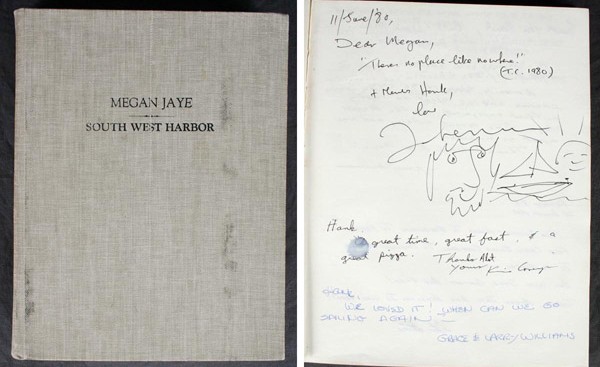 MEGAN JAYE
SOUTH WEST HARBOR
11/June/'80,
Dear Megan,
"There's no place like nowhere!"
(T.C. 1980)
+ Hank,
love
Hank
great time, great fast, & a
great pizza. Thanks Alot
Yours
WE LOVED IT! WHEN CAN WE GO
SAILING AGAIN
GRACE & LARRY WILLIAMS